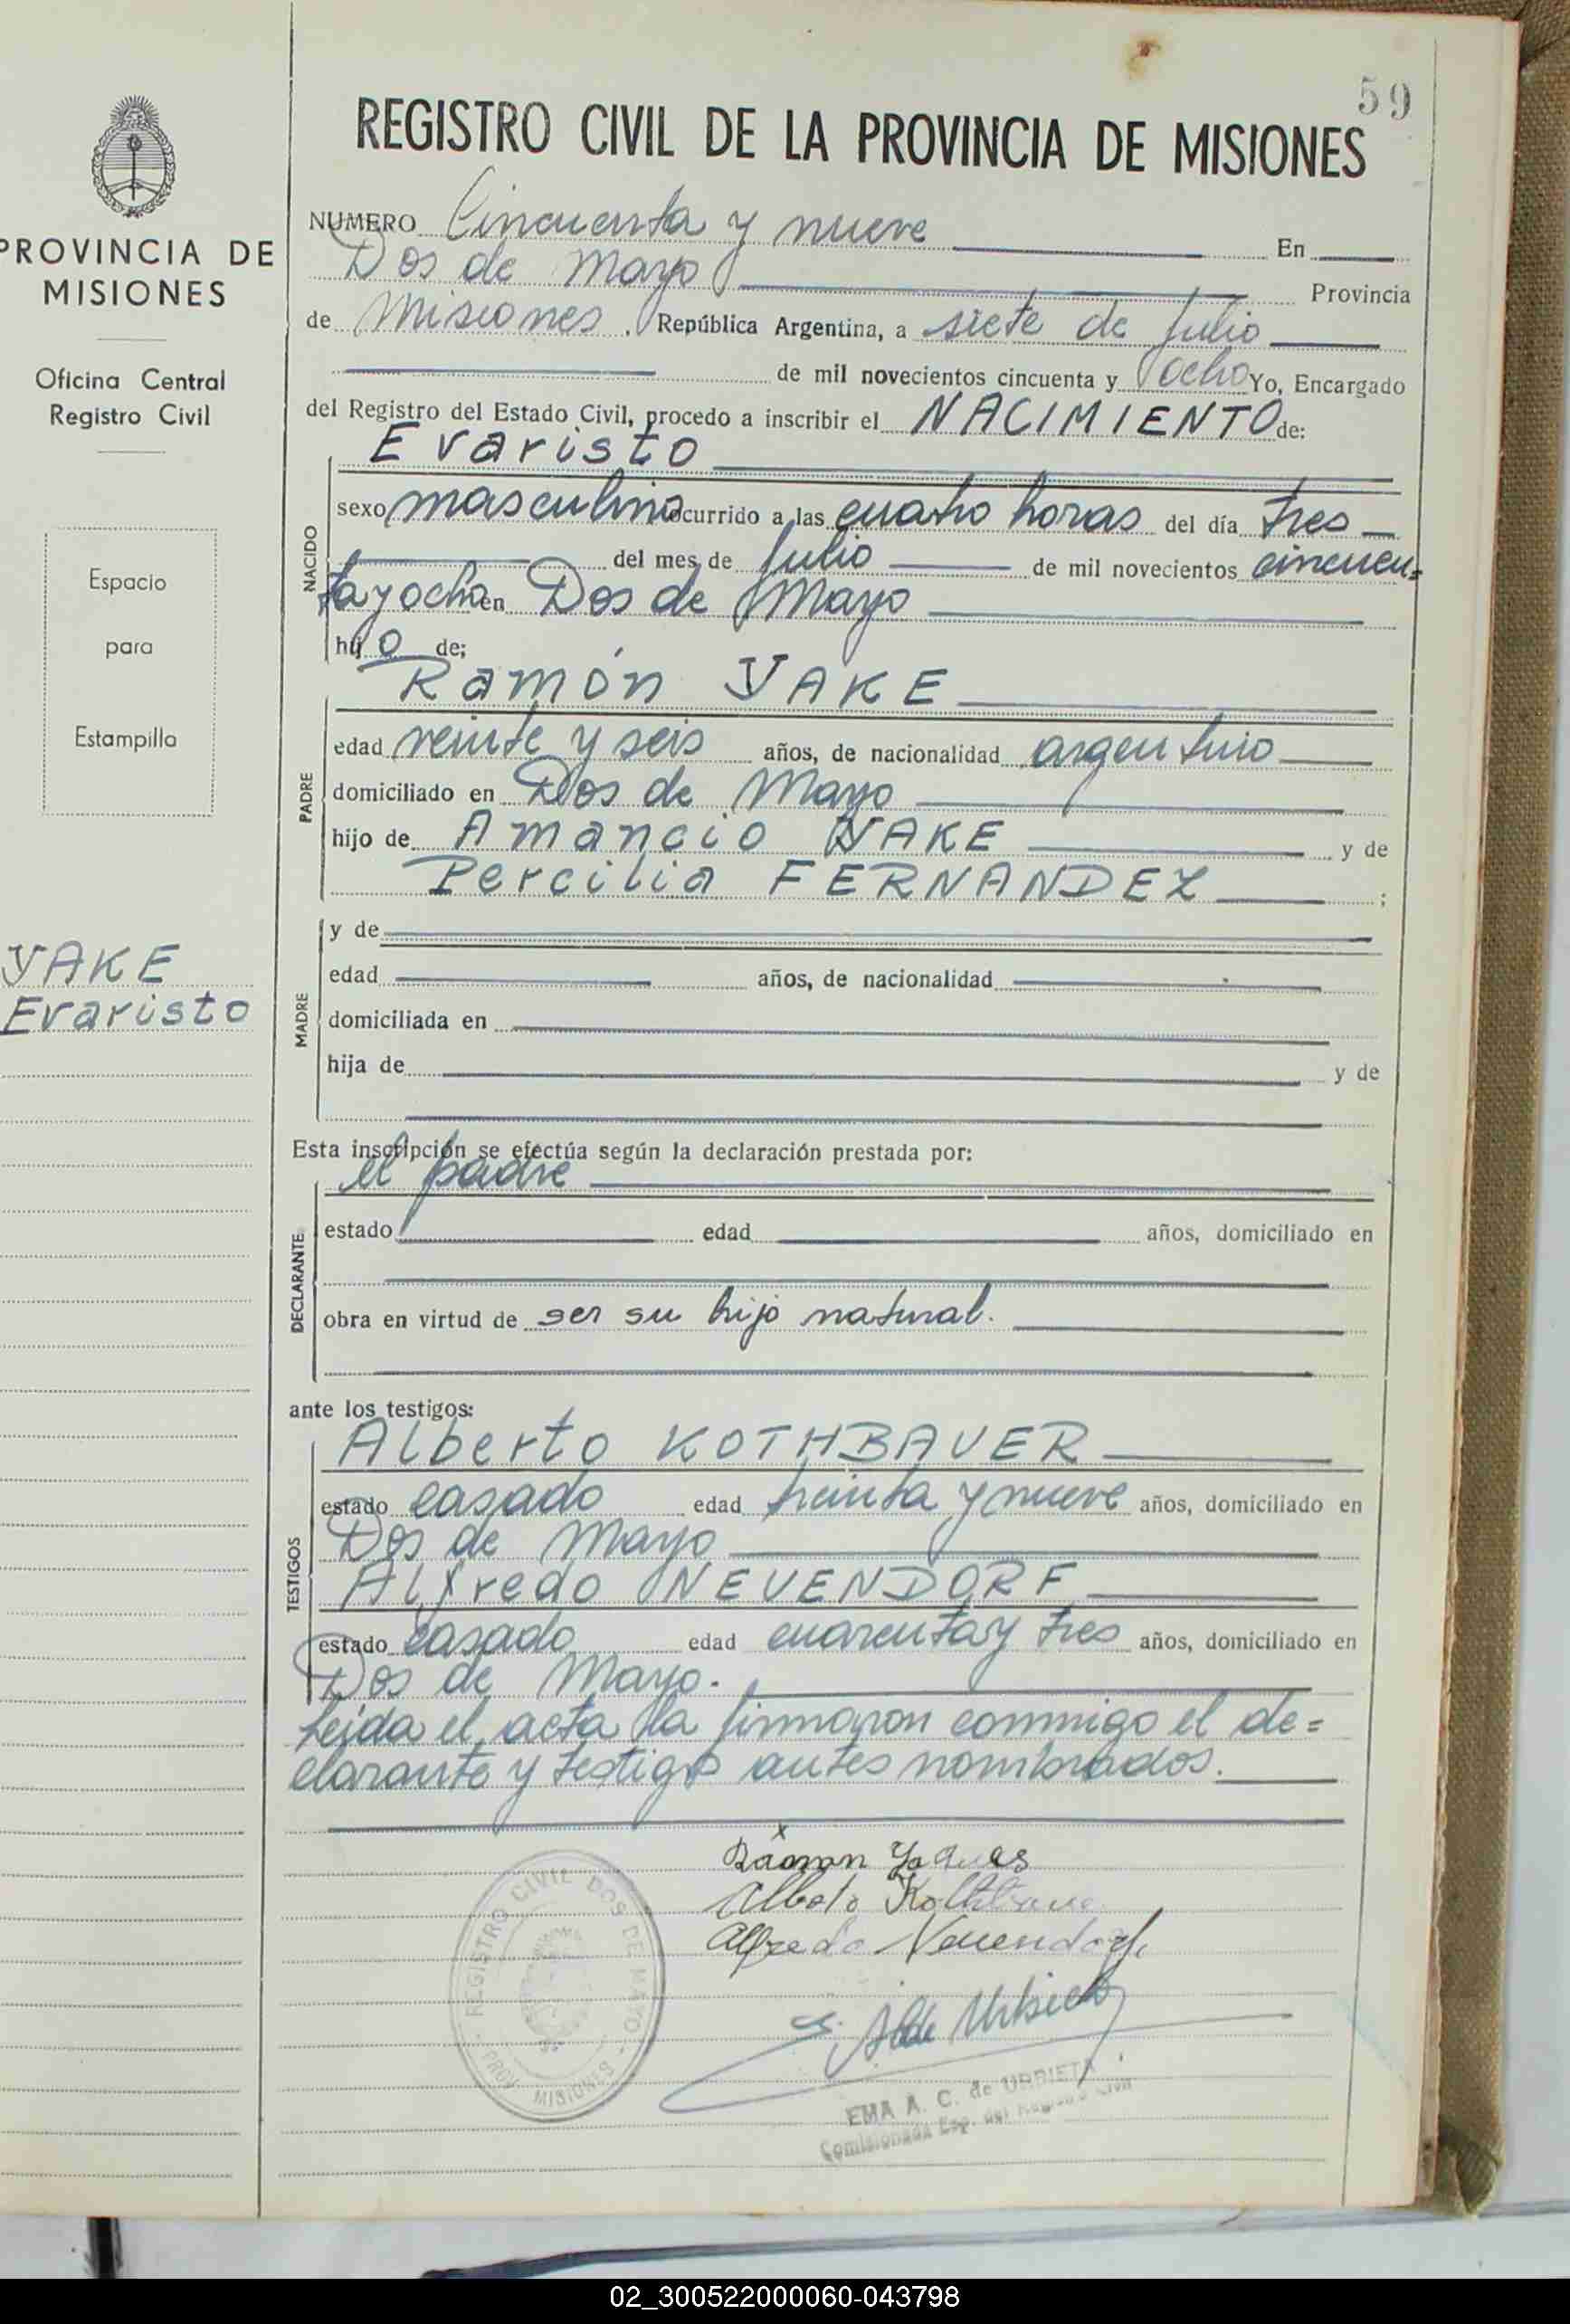 59
REGISTRO CIVIL DE LA PROVINCIA DE MISIONES
PROVINCIA DE
MISIONES
Oficina Central
Registro Civil
Espacio
para
Estampilla
YAKE
Evaristo
NUMERO Cincuenta y nueve En
Dos de Mayo Provincia
de Misiones, República Argentina, a siete de Julio
de mil novecientos cincuenta y ocho Yo, Encargado
del Registro del Estado Civil, procedo a inscribir el NACIMIENTO de:
Evaristo
NACIDO
sexo masculino ocurrido a las cuatro horas del día tres
del mes de Julio de mil novecientos cincuen=
ta y ocho en Dos de Mayo
hijo de;
Ramón YAKE
PADRE
edad veinte y seis años, de nacionalidad argentino
domiciliado en Dos de Mayo
hijo de Amancio YAKE y de
Percilia FERNANDEZ ;
MADRE
y de
edad años, de nacionalidad
domiciliada en
hija de y de
Esta inscripción se efectúa según la declaración prestada por:
el padre
DECLARANTE
estado edad años, domiciliado en
obra en virtud de ser su hijo natural.
ante los testigos:
Alberto KOTHBAUER
TESTIGOS
estado casado edad treinta y nueve años, domiciliado en
Dos de Mayo
Alfredo NEUENDORF
estado casado edad cuarenta y tres años, domiciliado en
Dos de Mayo.
Leída el acta la firmaron conmigo el de=
clarante y testigos antes nombrados.
x
Ramon Yaques
Alberto
Alfredo Neuendorf
REGISTRO CIVIL DOS DE MAYO
PROV. MISIONES
EMA A. C. de URBIETA
Comisionada Esp. del Registro Civil
02_300522000060-043798